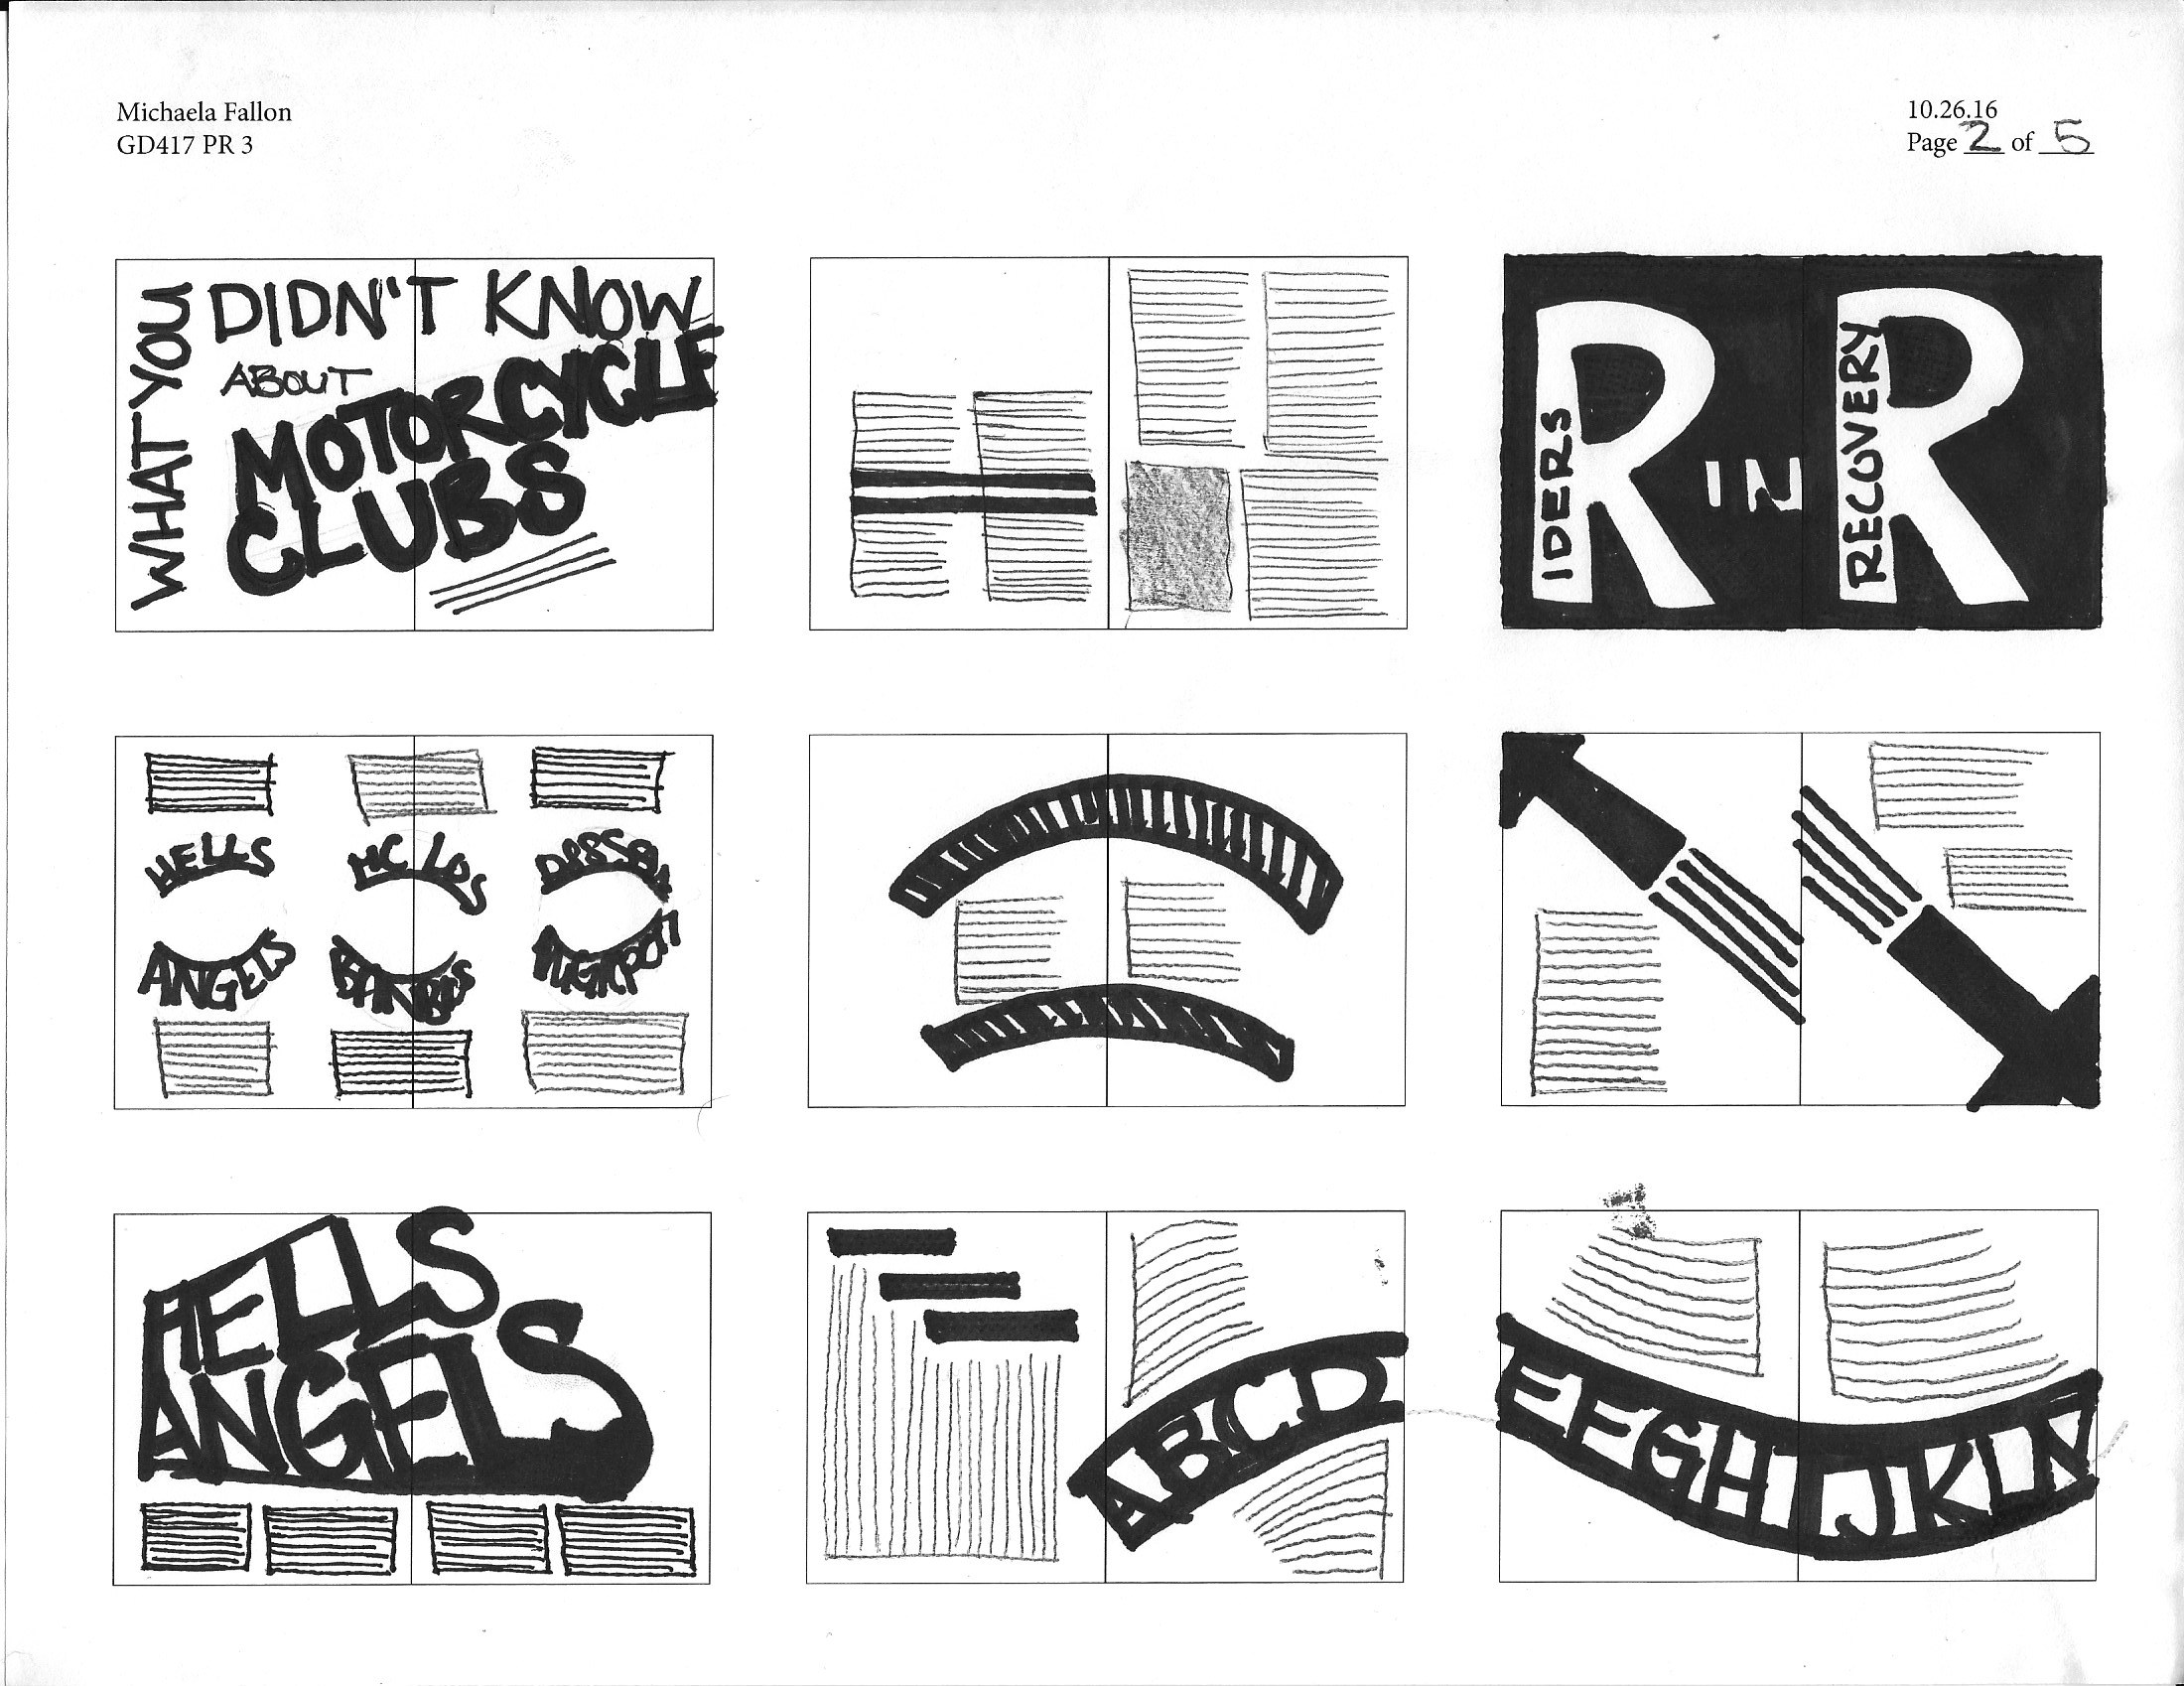 Michaela Fallon
GD417 PR 3
10.26.16
Page 2 of 5
WHAT YOU
DIDN'T KNOW
ABOUT
MOTORCYCLE
CLUBS
R IDERS
IN
R RECOVERY
HELLS
ANGELS
MC LOS
HELLS
ANGELS
ABCD